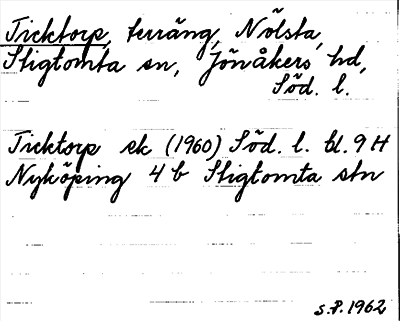 Ticktorp, terräng, Nölsta,
Stigtomta sn, Jönåkers hd,
Söd. l.
Ticktorp ek (1960) Söd. l. bl. 9 H
Nyköping 4 b Stigtomta stn
S.P. 1962